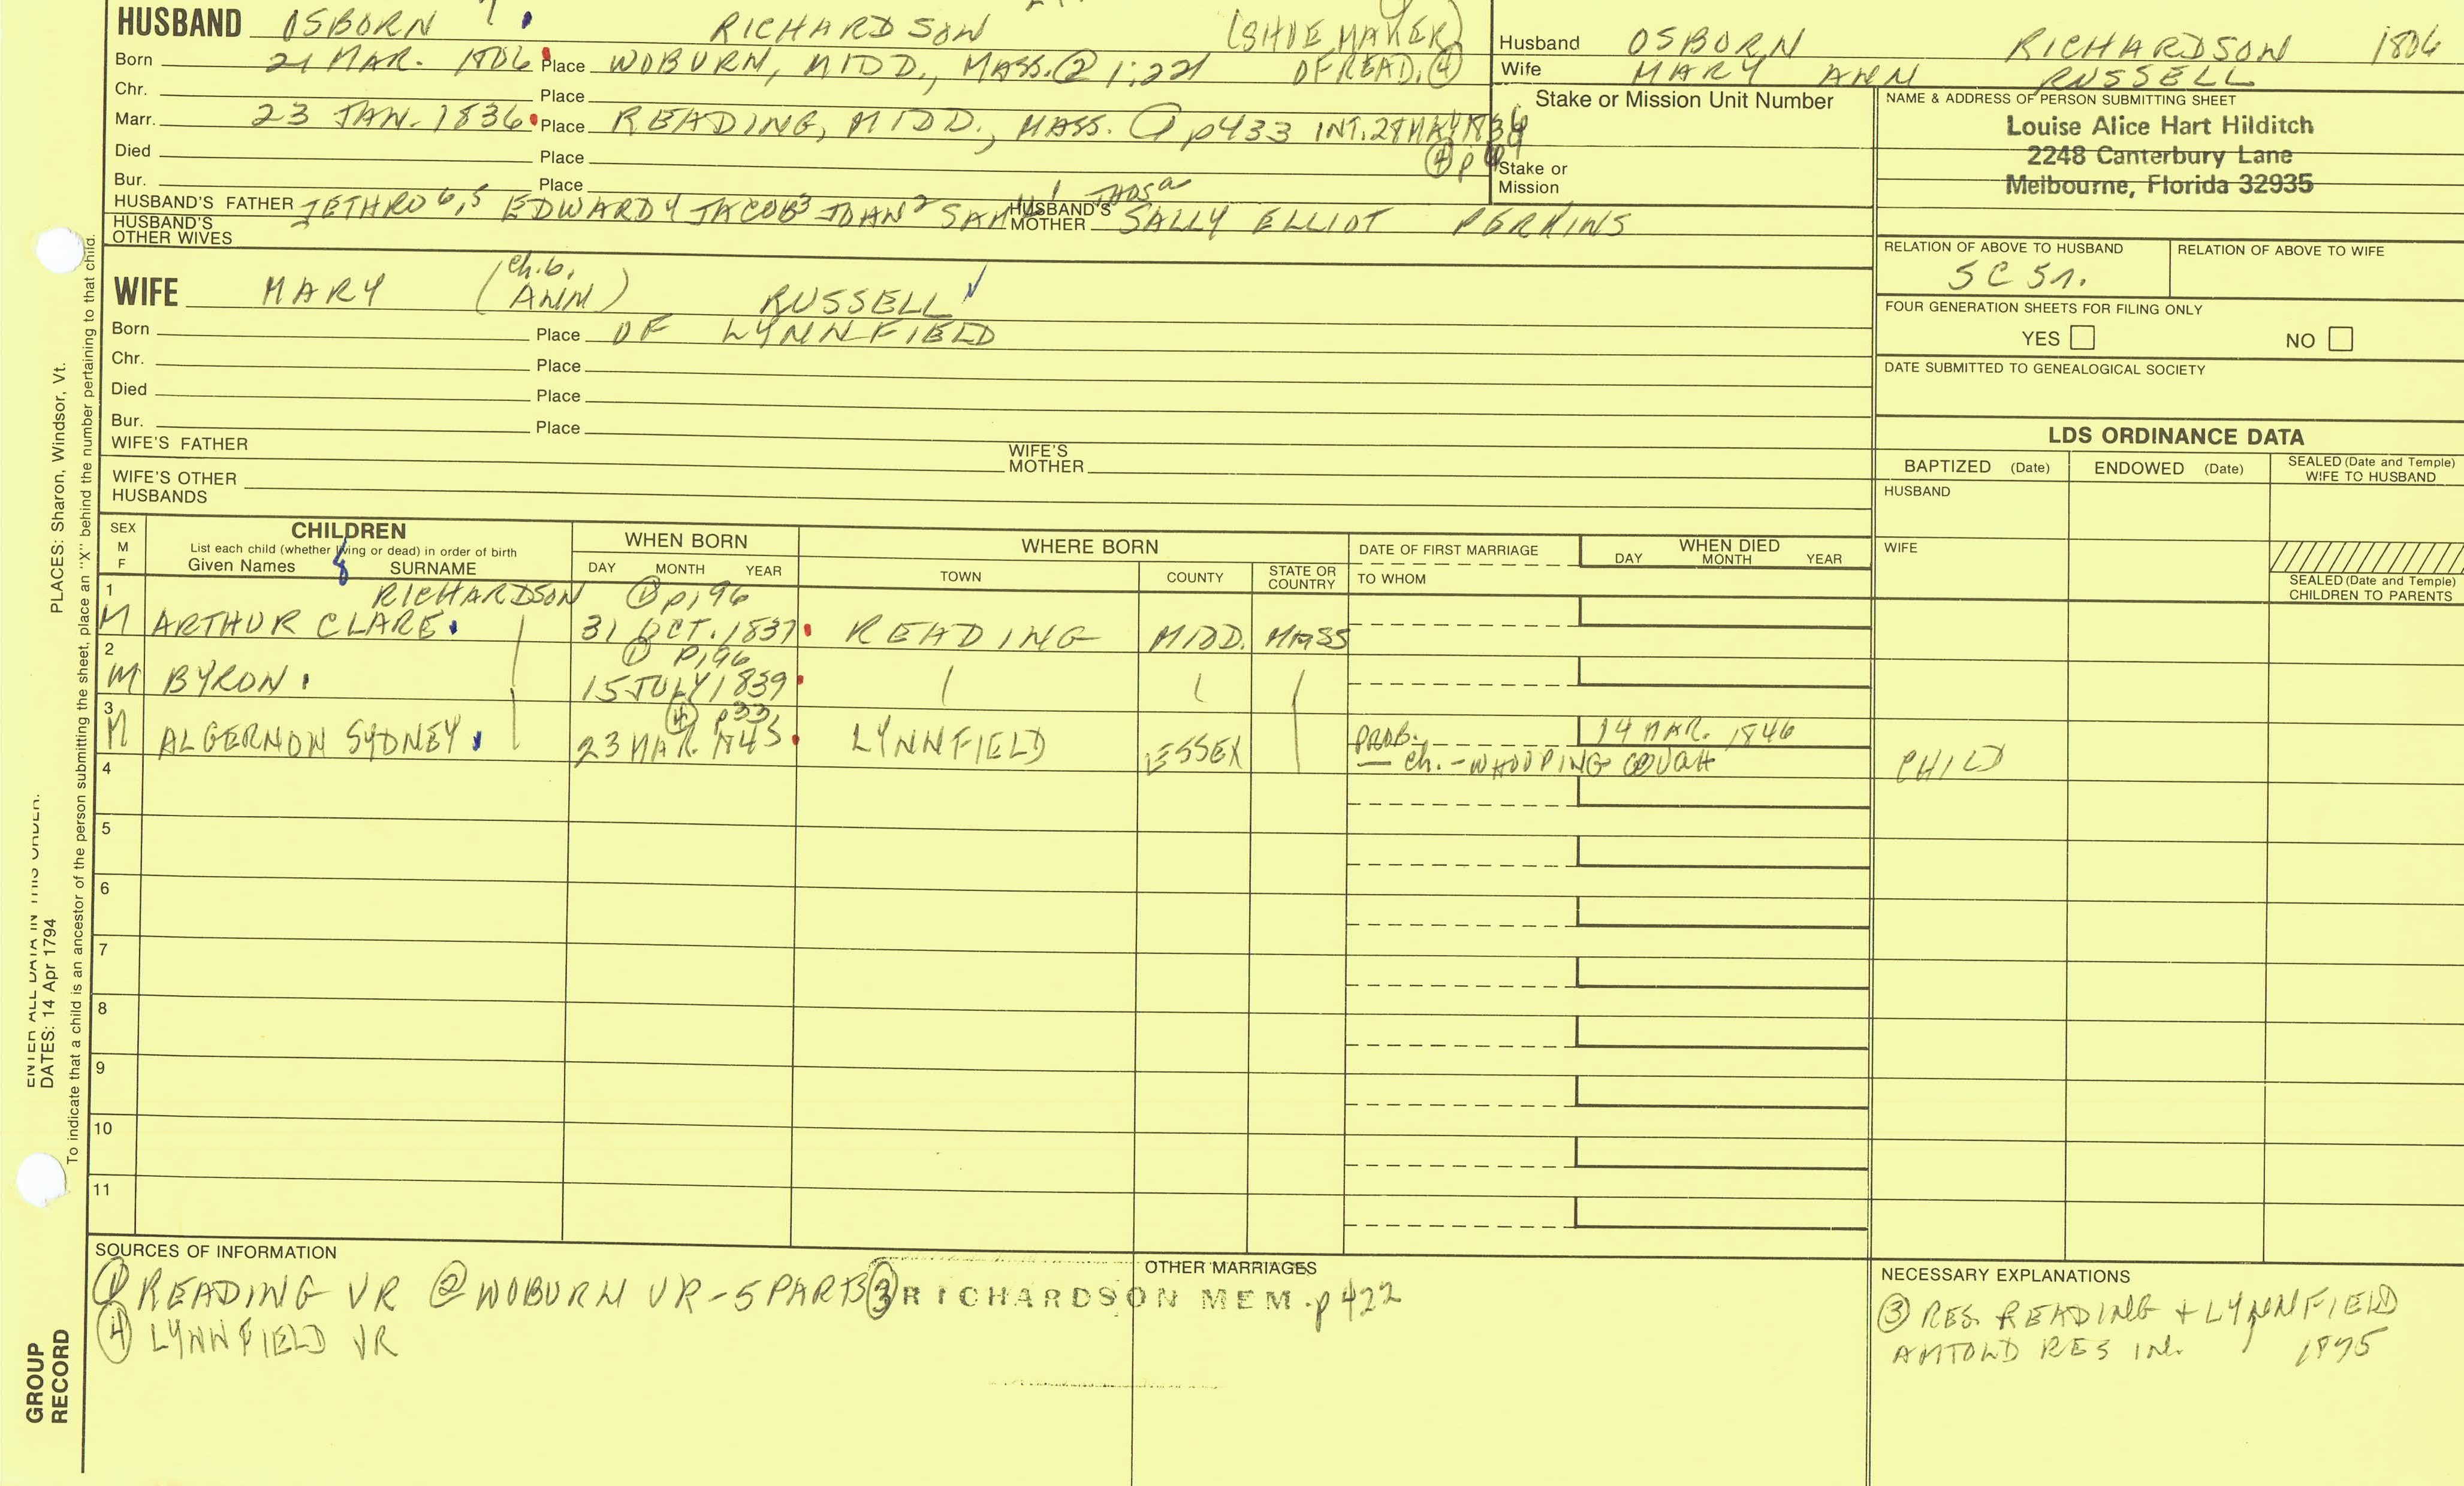 HUSBAND OSBORN 7. RICHARDSON (SHOEMAKER)
Born 21 MAR. 1806 Place WOBURN, MIDD., MASS. ② 1:221 OF READ. ④
Chr. Place
Marr. 23 JAN. 1836 Place READING, MIDD., MASS. ① p433 INT. 28 MAY
④ p
Died Place
Bur. Place
HUSBAND'S FATHER JETHRO 6,5 EDWARD 4 JACOB 3 2 HUSBAND'S MOTHER SALLY ELLIOT PERKINS
HUSBAND'S OTHER WIVES
Husband OSBORN RICHARDSON 1806
Wife MARY ANN RUSSELL
Stake or Mission Unit Number
Stake or Mission
NAME & ADDRESS OF PERSON SUBMITTING SHEET
Louise Alice Hart Hilditch
2248 Canterbury Lane
Melbourne, Florida 32935
RELATION OF ABOVE TO HUSBAND RELATION OF ABOVE TO WIFE
FOUR GENERATION SHEETS FOR FILING ONLY
YES NO
DATE SUBMITTED TO GENEALOGICAL SOCIETY
ch.6,
WIFE MARY (ANN) RUSSELL
Born Place OF LYNNFIELD
Chr. Place
Died Place
Bur. Place
WIFE'S FATHER WIFE'S MOTHER
WIFE'S OTHER HUSBANDS
LDS ORDINANCE DATA
BAPTIZED (Date) ENDOWED (Date) SEALED (Date and Temple) WIFE TO HUSBAND
HUSBAND
WIFE
SEALED (Date and Temple) CHILDREN TO PARENTS
SEX M F
CHILDREN
List each child (whether living or dead) in order of birth
Given Names 8 SURNAME
WHEN BORN
DAY MONTH YEAR
WHERE BORN
TOWN COUNTY STATE OR COUNTRY
DATE OF FIRST MARRIAGE
TO WHOM
WHEN DIED
DAY MONTH YEAR
1 RICHARDSON ① p196
M ARTHUR CLARE 31 OCT. 1837 READING MIDD. MASS
2 ① p196
M BYRON 15 JULY 1839
3 ④ p33
M ALGERNON SYDNEY 23 MAR. 1843 LYNNFIELD ESSEX PROB. 14 MAR. 1846
ch. - WHOOPING COUGH CHILD
4
5
6
7
8
9
10
11
SOURCES OF INFORMATION
① READING VR ② WOBURN VR-5 PARTS ③ RICHARDSON MEM. p422
④ LYNNFIELD VR
OTHER MARRIAGES
NECESSARY EXPLANATIONS
③ RES. READING + LYNNFIELD
RES 1875
PLACES: Sharon, Windsor, Vt.
ENTER ALL DATA IN THIS ORDER.
DATES: 14 Apr 1794
To indicate that a child is an ancestor of the person submitting the sheet, place an "X" behind the number pertaining to that child.
GROUP
RECORD